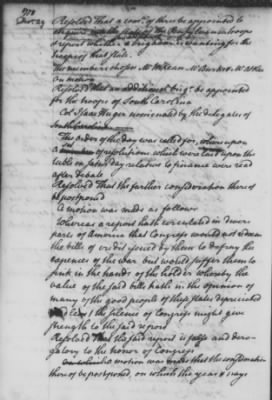 1778
Decr 29
Resolved that a comee. of three be appointed to
enquire into the state of the Pennsylvania troops
& report whether a brigadier is wanting for the
troops of that State
The members chosen Mr McKean Mr Burke & Mr
On motion
Resolved That an additional brigr. be appointed
for the troops of South Carolina
Col Isaac Huger nominated by the delegates of
South Carolina
The order of the day was called for, whereupon
a of resolutions which were laid upon the
table on saturday relative to finance were read
after debate
Resolved That the farther consideration thereof
be postponed
A motion was made as follows
Whereas a report hath circulated in divers
parts of America that Congress would not redeem
the bills of credit issued by them to defray the
expences of the war but would suffer them to
sink in the hands of the holder whereby the
value of the said bills hath in the opinion of
many of the good people of these states depreciated
and lest the silence of Congress might give
strength to the said report
Resolved That the said report is false and dero-
gatory to the honor of Congress
a motion was made that the consideration
thereof be postponed, on which the yeas & nays